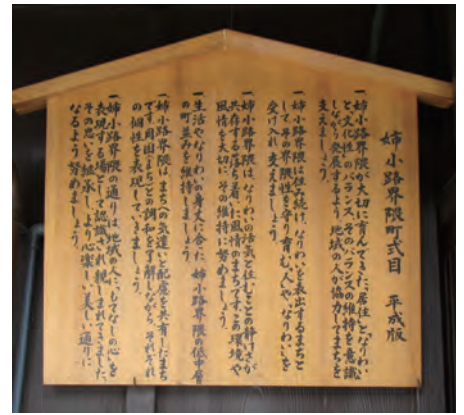 姉小路界隈町式目　平成版
一 姉小路界隈が大切に育んできた、居住となりわい
と文化性のバランス、そのバランスの維持を意識
しながら発展するよう地域の人が協力してまちを
支えましょう。
一 姉小路界隈は住み続け、なりわいを表出するまちと
して、その界隈性を守り育む、人や、なりわいを
受け入れ支えましょう。
一 姉小路界隈は、なりわいの活気と住むことの静けさが
共存する落ち着いた風情のまちです。この環境や
風情を大切に、その維持に努めましょう。
一 生活やなりわいの身丈に合った、姉小路界隈の低中層
の町並みを維持しましょう。
一 姉小路界隈は、まちへの気遣いと配慮を共有したまち
です。周囲(まち)との調和を了解しながら、それぞれ
の個性を表現していきましょう。
一 姉小路界隈の通りは、地域の人に、もてなしの心を
表現する場として認識され親しまれてきました。
その思いを継承し、より心楽しい美しい通りに
なるよう努めましょう。